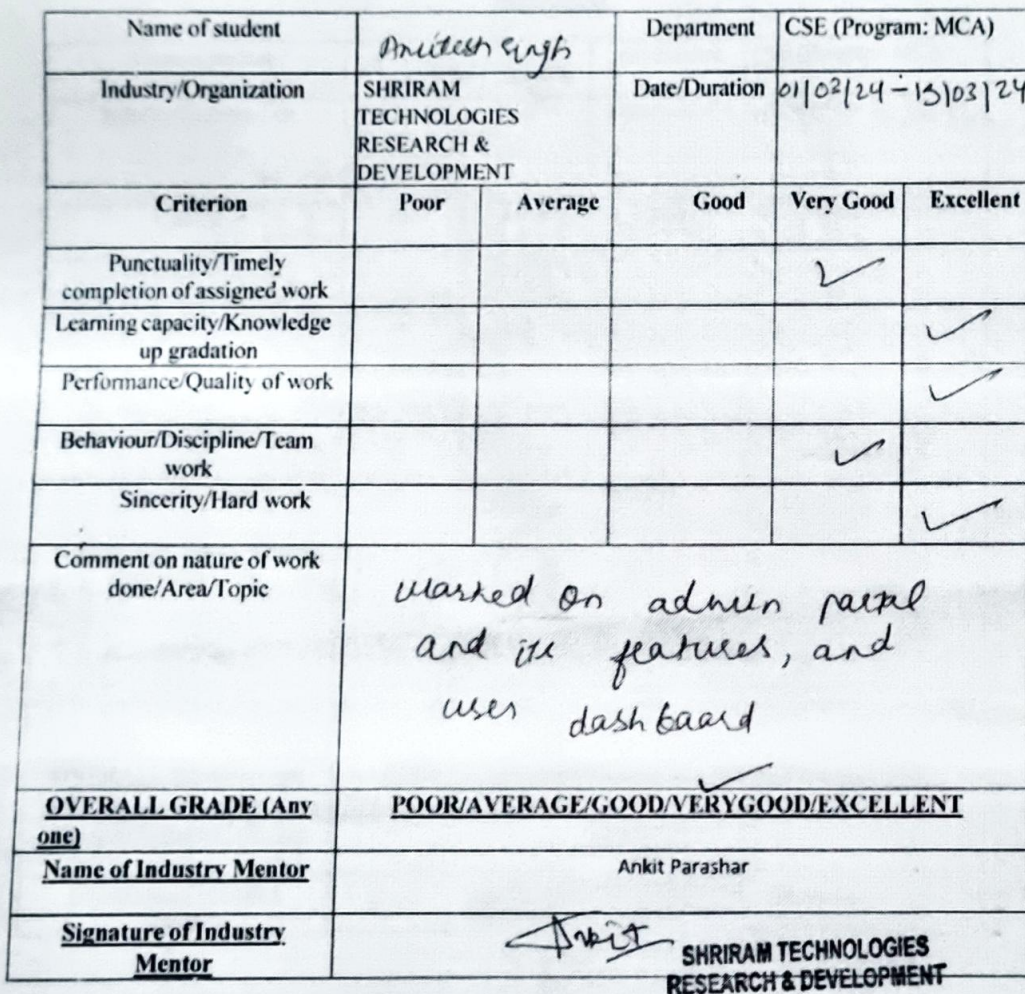 Name of student
Singh
Department
CSE (Program: MCA)
Industry/Organization
SHRIRAM
TECHNOLOGIES
RESEARCH &
DEVELOPMENT
Date/Duration
01/02/24 - 15/03/24
Criterion
Poor
Average
Good
Very Good
Excellent
Punctuality/Timely
completion of assigned work
Learning capacity/Knowledge
up gradation
Performance/Quality of work
Behaviour/Discipline/Team
work
Sincerity/Hard work
Comment on nature of work
done/Area/Topic
worked on admin portal
and its features, and
user dashboard
OVERALL GRADE (Any
one)
POOR/AVERAGE/GOOD/VERYGOOD/EXCELLENT
Name of Industry Mentor
Ankit Parashar
Signature of Industry
Mentor
Ankit
SHRIRAM TECHNOLOGIES
RESEARCH & DEVELOPMENT